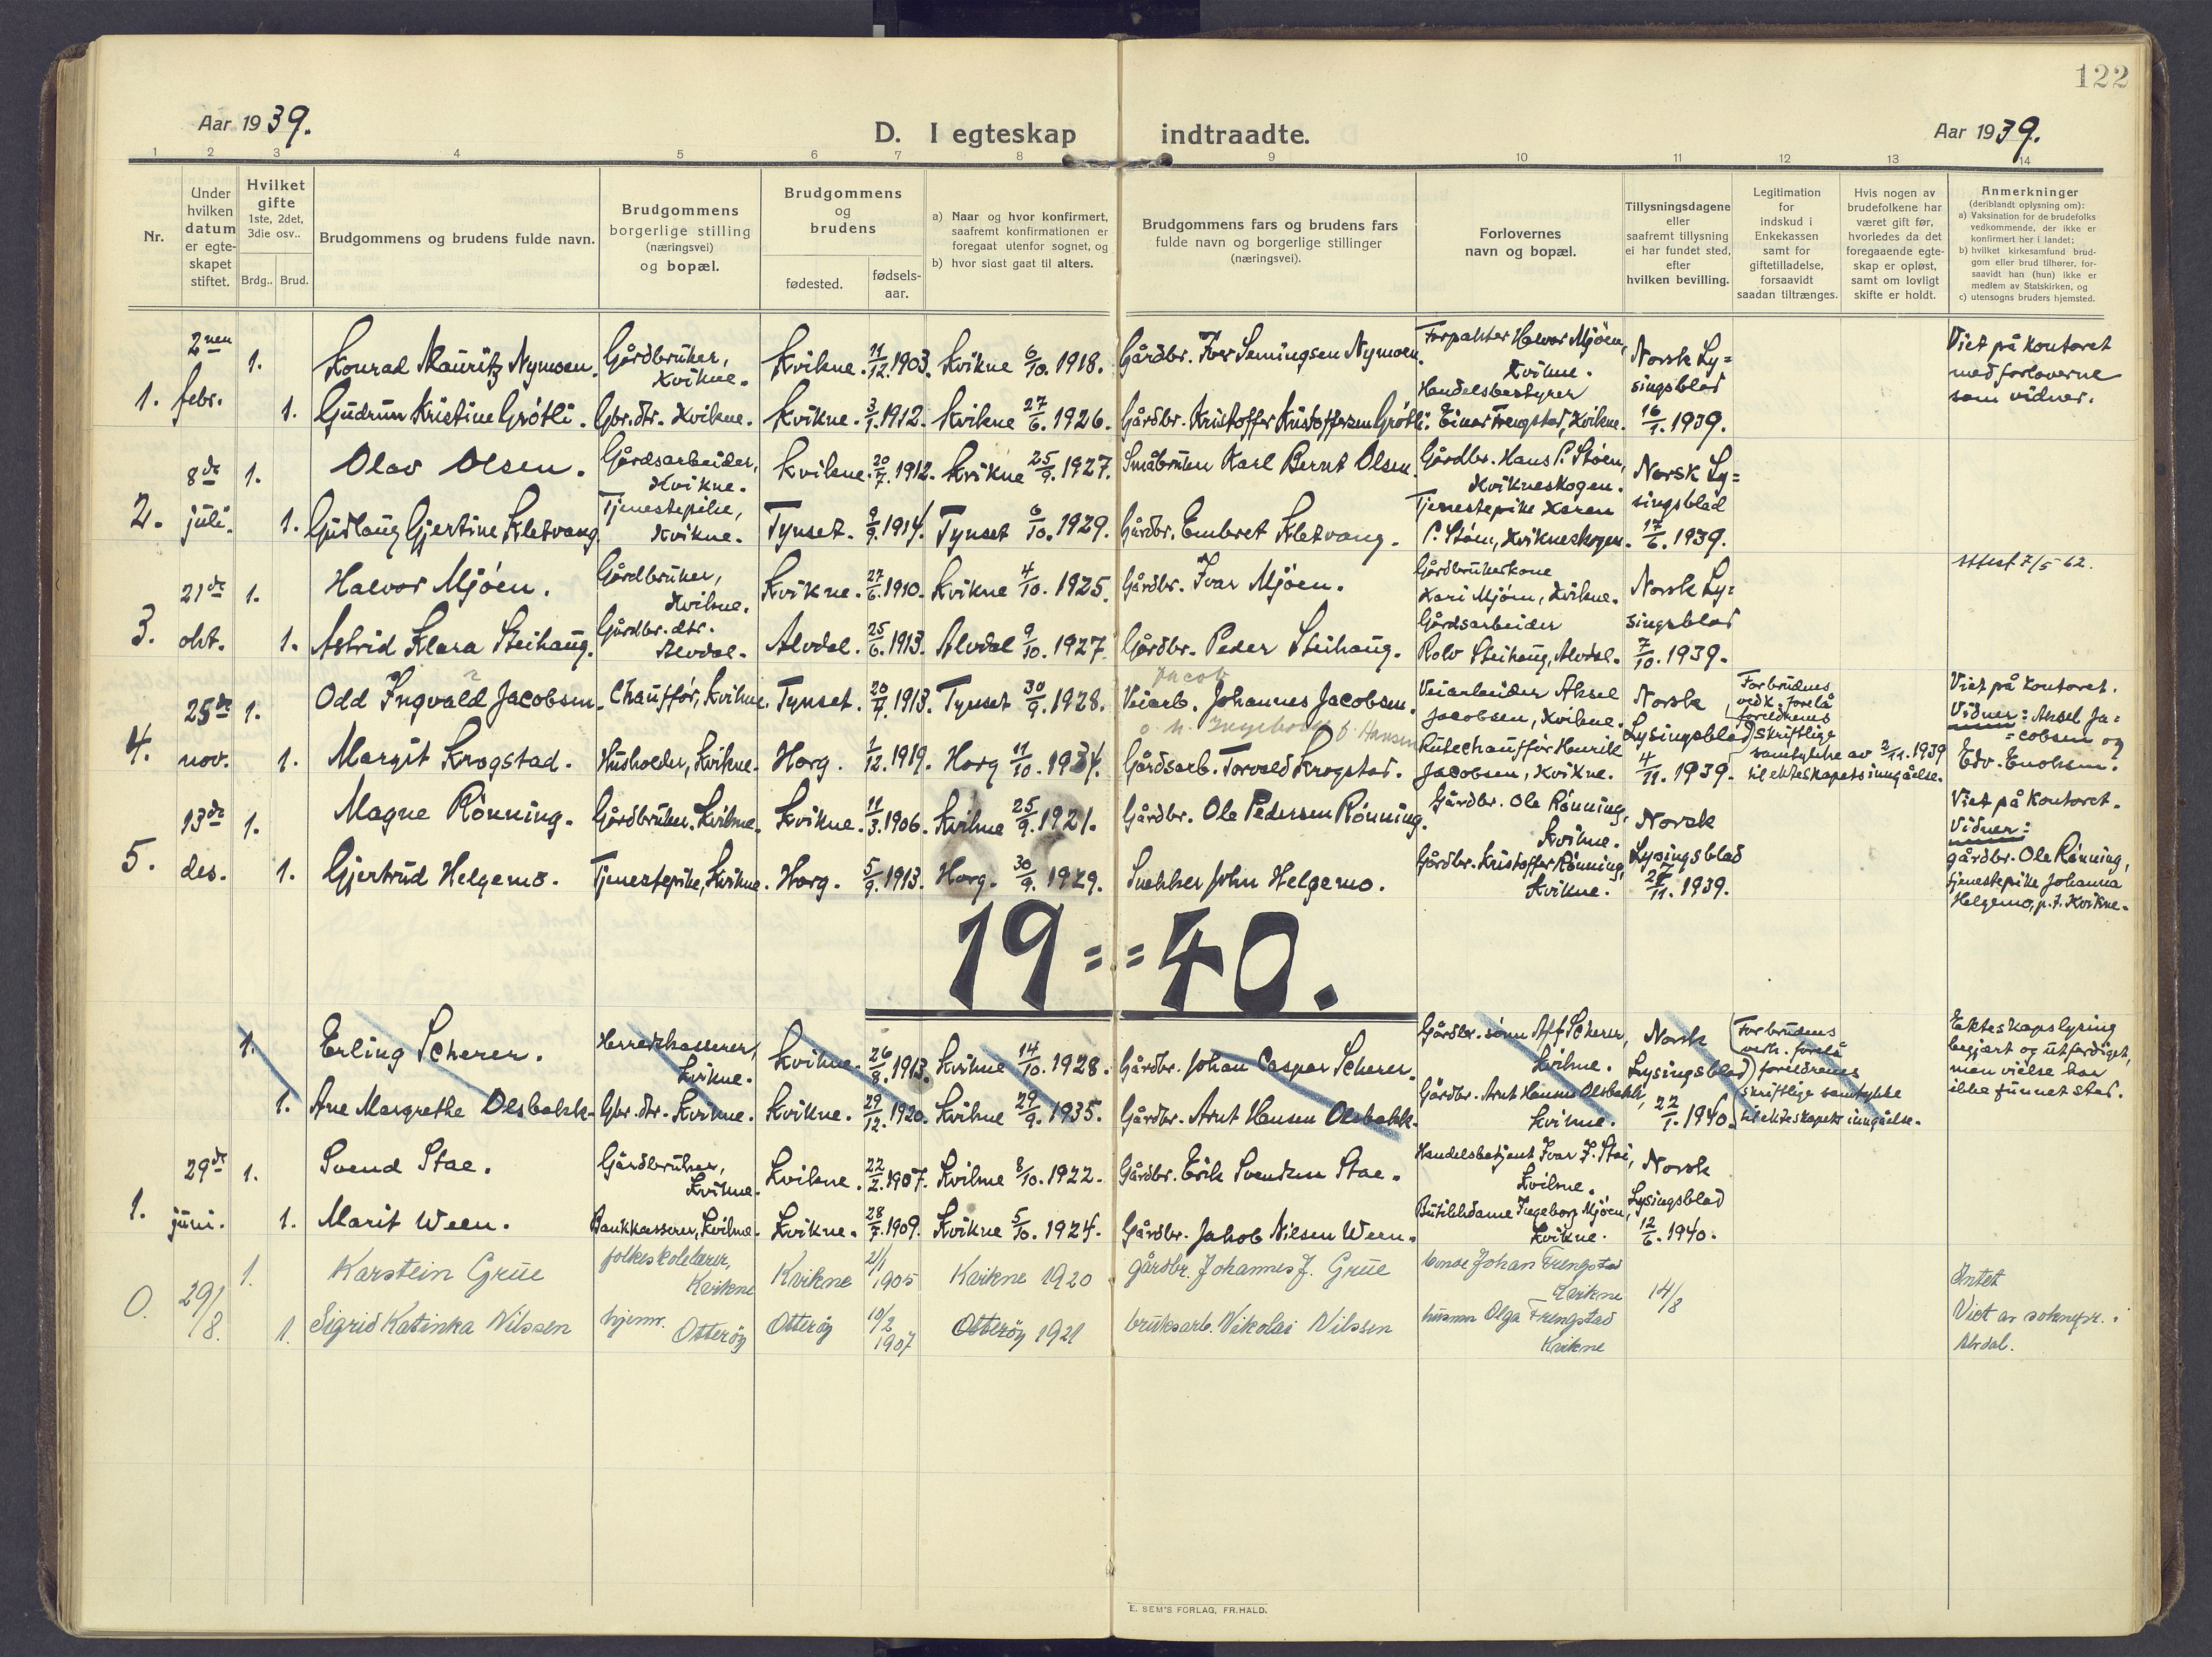 122
Aar 1939.
D. I egteskap indtraadte.
Aar 1939.
1 2 3 4 5 6 7 8 9 10 11 12 13 14
Nr.
Under
hvilken
datum
er egte-
skapet
stiftet.
Hvilket
gifte
1ste, 2det,
3die osv..
Brdg.. Brud.
Brudgommens og brudens fulde navn.
Brudgommens
borgerlige stilling
(næringsvei)
og bopæl.
Brudgommens
og
brudens
fødested.
fødsels-
aar.
a) Naar og hvor konfirmert,
saafremt konfirmationen er
foregaat utenfor sognet, og
b) hvor sidst gaat til alters.
Brudgommens fars og brudens fars
fulde navn og borgerlige stillinger
(næringsvei).
Forlovernes
navn og bopæl.
Tillysningsdagene
eller
saafremt tillysning
ei har fundet sted,
efter
hvilken bevilling.
Legitimation
for
indskud i
Enkekassen
samt for
giftetilladelse,
forsaavidt
saadan tiltrænges.
Hvis nogen av
brudefolkene har
været gift før,
hvorledes da det
foregaaende egte-
skap er opløst,
samt om lovligt
skifte er holdt.
Anmerkninger
(deriblandt oplysning om):
a) Vaksination for de brudefolks
vedkommende, der ikke er
konfirmert her i landet;
b) hvilket kirkesamfund brud-
gom eller brud tilhører, for-
saavidt han (hun) ikke er
medlem av Statskirken, og
c) utensogns bruders hjemsted.
1.
2nen
febr.
1.
Konrad Mauritz Nymoen.
Gårdbruker,
Kvikne.
Kvikne. 11/12. 1903. Kvikne 6/10. 1918.
Gårdbr. Iver Semingsen Nymoen.
Forpakter Halvor Mjøen,
Kvikne.
1.
Gudrun Kristine Grøtli.
Gbr. dtr. Kvikne.
Kvikne. 3/1. 1912. Kvikne 27/6. 1926.
Gårdbr. Kristoffer Kristoffersen Grøtli.
Handelsbestyrer
Einar Frengstad, Kvikne.
Norsk Ly=
singsblad
16/1. 1939.
Viet på kontoret
med forloverne
som vidner.
2.
8de
juli.
1.
Olav Olsen.
Gårdsarbeider,
Kvikne.
Kvikne. 20/7. 1912. Kvikne 25/9. 1927.
Småbruker Karl Bernt Olsen.
Gårdbr. Hans P. Støen,
Kvikneskogen.
1.
Gudlaug Gjertine Kletvang.
Tjenestepike,
Kvikne.
Tynset. 9/9. 1914. Tynset 6/10. 1929.
Gårdbr. Embret Kletvang.
Tjenestepike Karen
P. Støen, Kvikneskogen.
Norsk Ly=
singsblad
17/6. 1939.
3.
21de
okt.
1.
Halvor Mjøen.
Gårdbruker,
Kvikne.
Kvikne. 27/6. 1910. Kvikne 4/10. 1925.
Gårdbr. Ivar Mjøen.
Gårdbrukerkone
Kari Mjøen, Kvikne.
1.
Astrid Klara Steihaug.
Gårdbr. dtr.
Alvdal.
Alvdal. 25/6. 1913. Alvdal 9/10. 1927.
Gårdbr. Peder Steihaug.
Gårdsarbeider
Rolv Steihaug, Alvdal.
Norsk Ly=
singsblad
7/10. 1939.
Attest 7/5-62.
4.
25de
nov.
1.
Odd Ingvald Jacobsen.
Chauffør, Kvikne.
Tynset. 20/7. 1913. Tynset 30/9. 1928.
Jacob
Veiarb. Johannes Jacobsen.
Ingeborg f. Hansen
Veiarbeider Aksel
Jacobsen, Kvikne.
1.
Margit Krogstad.
Husholder, Kvikne.
Horg. 1/12. 1919. Horg 11/10. 1934.
Gårdsarb. Torvald Krogstad.
Rutechauffør Henrik
Jacobsen, Kvikne.
Norsk
Lysingsblad
4/11. 1939.
For brudens
vedk. forelå
foreldrenes
skriftlige
samtykke av 2/11. 1939
til ekteskapets inngåelse.
Viet på kontoret.
Vidner: Aksel Ja=
=cobsen og
Edv. Enoksen.
5.
13de
des.
1.
Magne Rønning.
Gårdbruker, Kvikne.
Kvikne. 11/3. 1906. Kvikne 25/9. 1921.
Gårdbr. Ole Pedersen Rønning.
Gårdbr. Ole Rønning,
Kvikne.
1.
Gjertrud Helgemo.
Tjenestepike, Kvikne.
Horg. 5/9. 1913. Horg. 30/9. 1929.
Snekker John Helgemo.
Gårdbr. Kristoffer Rønning,
Kvikne.
Norsk
Lysingsblad
27/11. 1939.
Viet på kontoret.
Vidner:
gårdbr. Ole Rønning,
tjenestepike Johanna
Helgemo, p.t. Kvikne.
19==40.
1.
Erling Scherer.
Herredskasserer,
Kvikne.
Kvikne. 26/8. 1913. Kvikne 14/10. 1928.
Gårdbr. Johan Caspar Scherer.
Gårdbr. sønn Alf Scherer,
Kvikne.
1.
Ane Margrethe Olsbakk.
Gbr. dtr. Kvikne.
Kvikne. 29/12. 1920. Kvikne 29/9. 1935.
Gårdbr. Arnt Hansen Olsbakk.
Gårdbr. Arnt Hansen Olsbakk,
Kvikne.
Norsk
Lysingsblad
22/1. 1940.
For brudens
vedk. forelå
foreldrenes
skriftlige samtykke
til ekteskapets inngåelse.
Ekteskapslysing
begjært og utferdiget,
men vielse har
ikke funnet sted.
1.
29de
juni.
1.
Svend Stae.
Gårdbruker,
Kvikne.
Kvikne. 22/2. 1907. Kvikne 8/10. 1922.
Gårdbr. Erik Svendsen Stae.
Handelsbetjent Ivar J. Stai,
Kvikne.
1.
Marit Ween.
Bankkasserer, Kvikne.
Kvikne. 28/7. 1909. Kvikne 5/10. 1924.
Gårdbr. Jakob Nilsen Ween.
Butikkdame Ingeborg Mjøen,
Kvikne.
Norsk
Lysingsblad
12/6. 1940.
0.
29/8.
1.
Karstein Grue
folkeskolelærer,
Kvikne
Kvikne 21/1 1905 Kvikne 1920
gårdbr. Johannes J. Grue
Johan Frengstad
Kvikne
1.
Sigrid Katinka Nilssen
hjemv.
Otterøy
Otterøy 10/2 1907 Otterøy 1921
bruksarb. Nikolai Nilssen
husmor Olga Frengstad
Kvikne
14/8
Viet av soknepr. i
Alvdal.
E. SEM'S FORLAG, FR.HALD.